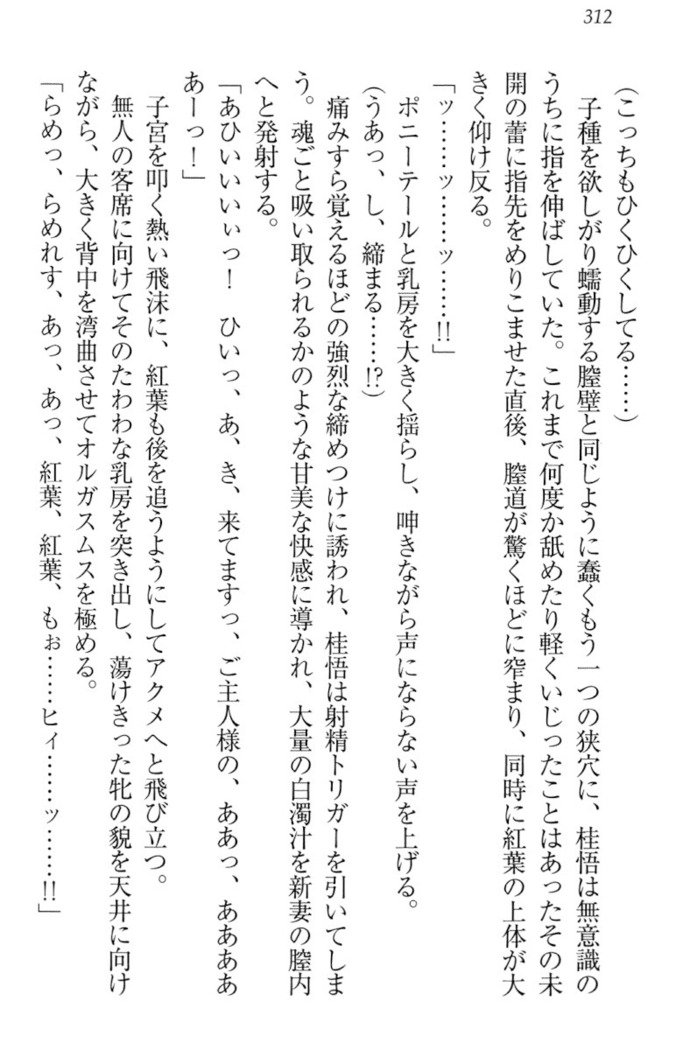 312
(こっちもひくひくしてる……)
子種を欲しがり蠕動する膣壁と同じように蠢くもう一つの狭穴に、桂悟は無意識の
うちに指を伸ばしていた。これまで何度か舐めたり軽くいじったことはあったその未
開の蕾に指先をめりこませた直後、膣道が驚くほどに窄まり、同時に紅葉の上体が大
きく仰け反る。
「ッ……ッ……ッ……!!」
ポニーテールと乳房を大きく揺らし、呻きながら声にならない声を上げる。
(うあっ、し、締まる……!?)
痛みすら覚えるほどの強烈な締めつけに誘われ、桂悟は射精トリガーを引いてしま
う。魂ごと吸い取られるかのような甘美な快感に導かれ、大量の白濁汁を新妻の膣内
へと発射する。
「あひいいいぃっ！　ひいっ、あ、き、来てますっ、ご主人様の、ああっ、ああああ
あーっ！」
子宮を叩く熱い飛沫に、紅葉も後を追うようにしてアクメへと飛び立つ。
無人の客席に向けてそのたわわな乳房を突き出し、蕩けきった牝の貌を天井に向け
ながら、大きく背中を湾曲させてオルガスムスを極める。
「らめっ、らめれす、あっ、あっ、紅葉、紅葉、もぉ……ヒィ……ッ……!!」